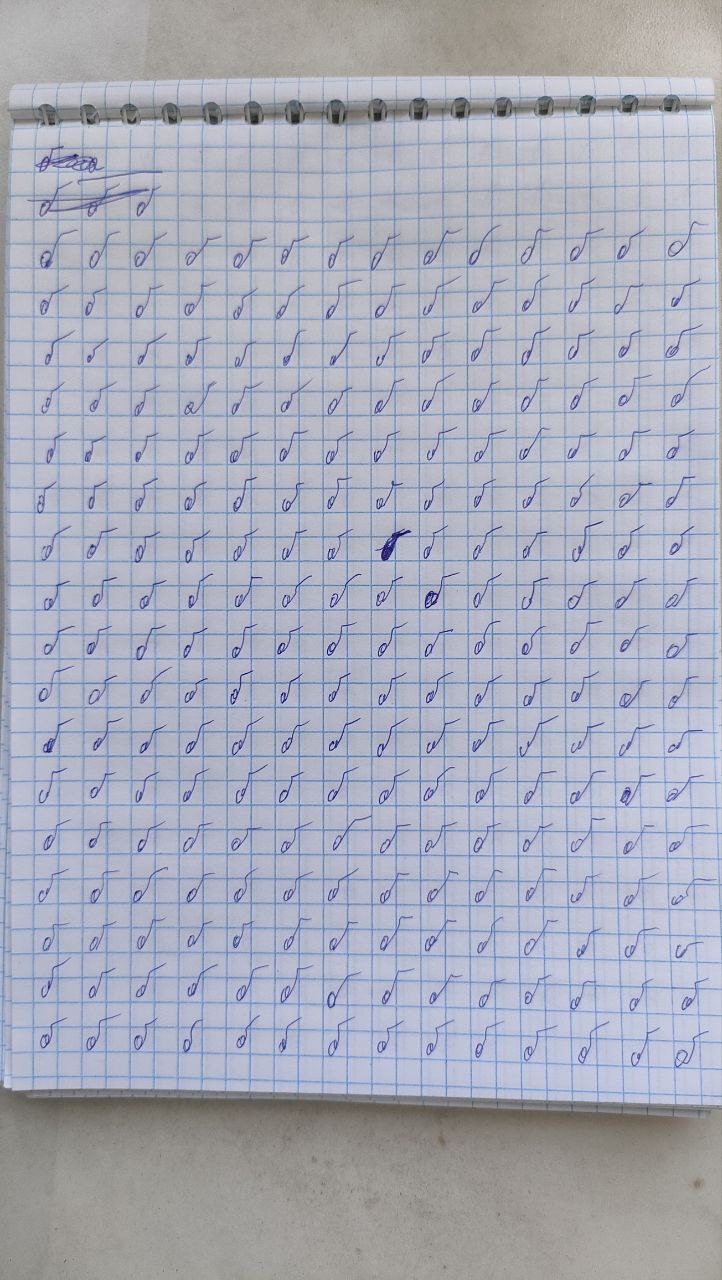 б б б б б б б б б б б б б б
б б б б б б б б б б б б б б
б б б б б б б б б б б б б б
б б б б б б б б б б б б б б
б б б б б б б б б б б б б б
б б б б б б б б б б б б б б
б б б б б б б б б б б б б б
б б б б б б б б б б б б б б
б б б б б б б б б б б б б б
б б б б б б б б б б б б б б
б б б б б б б б б б б б б б
б б б б б б б б б б б б б б
б б б б б б б б б б б б б б
б б б б б б б б б б б б б б
б б б б б б б б б б б б б б
б б б б б б б б б б б б б б
б б б б б б б б б б б б б б